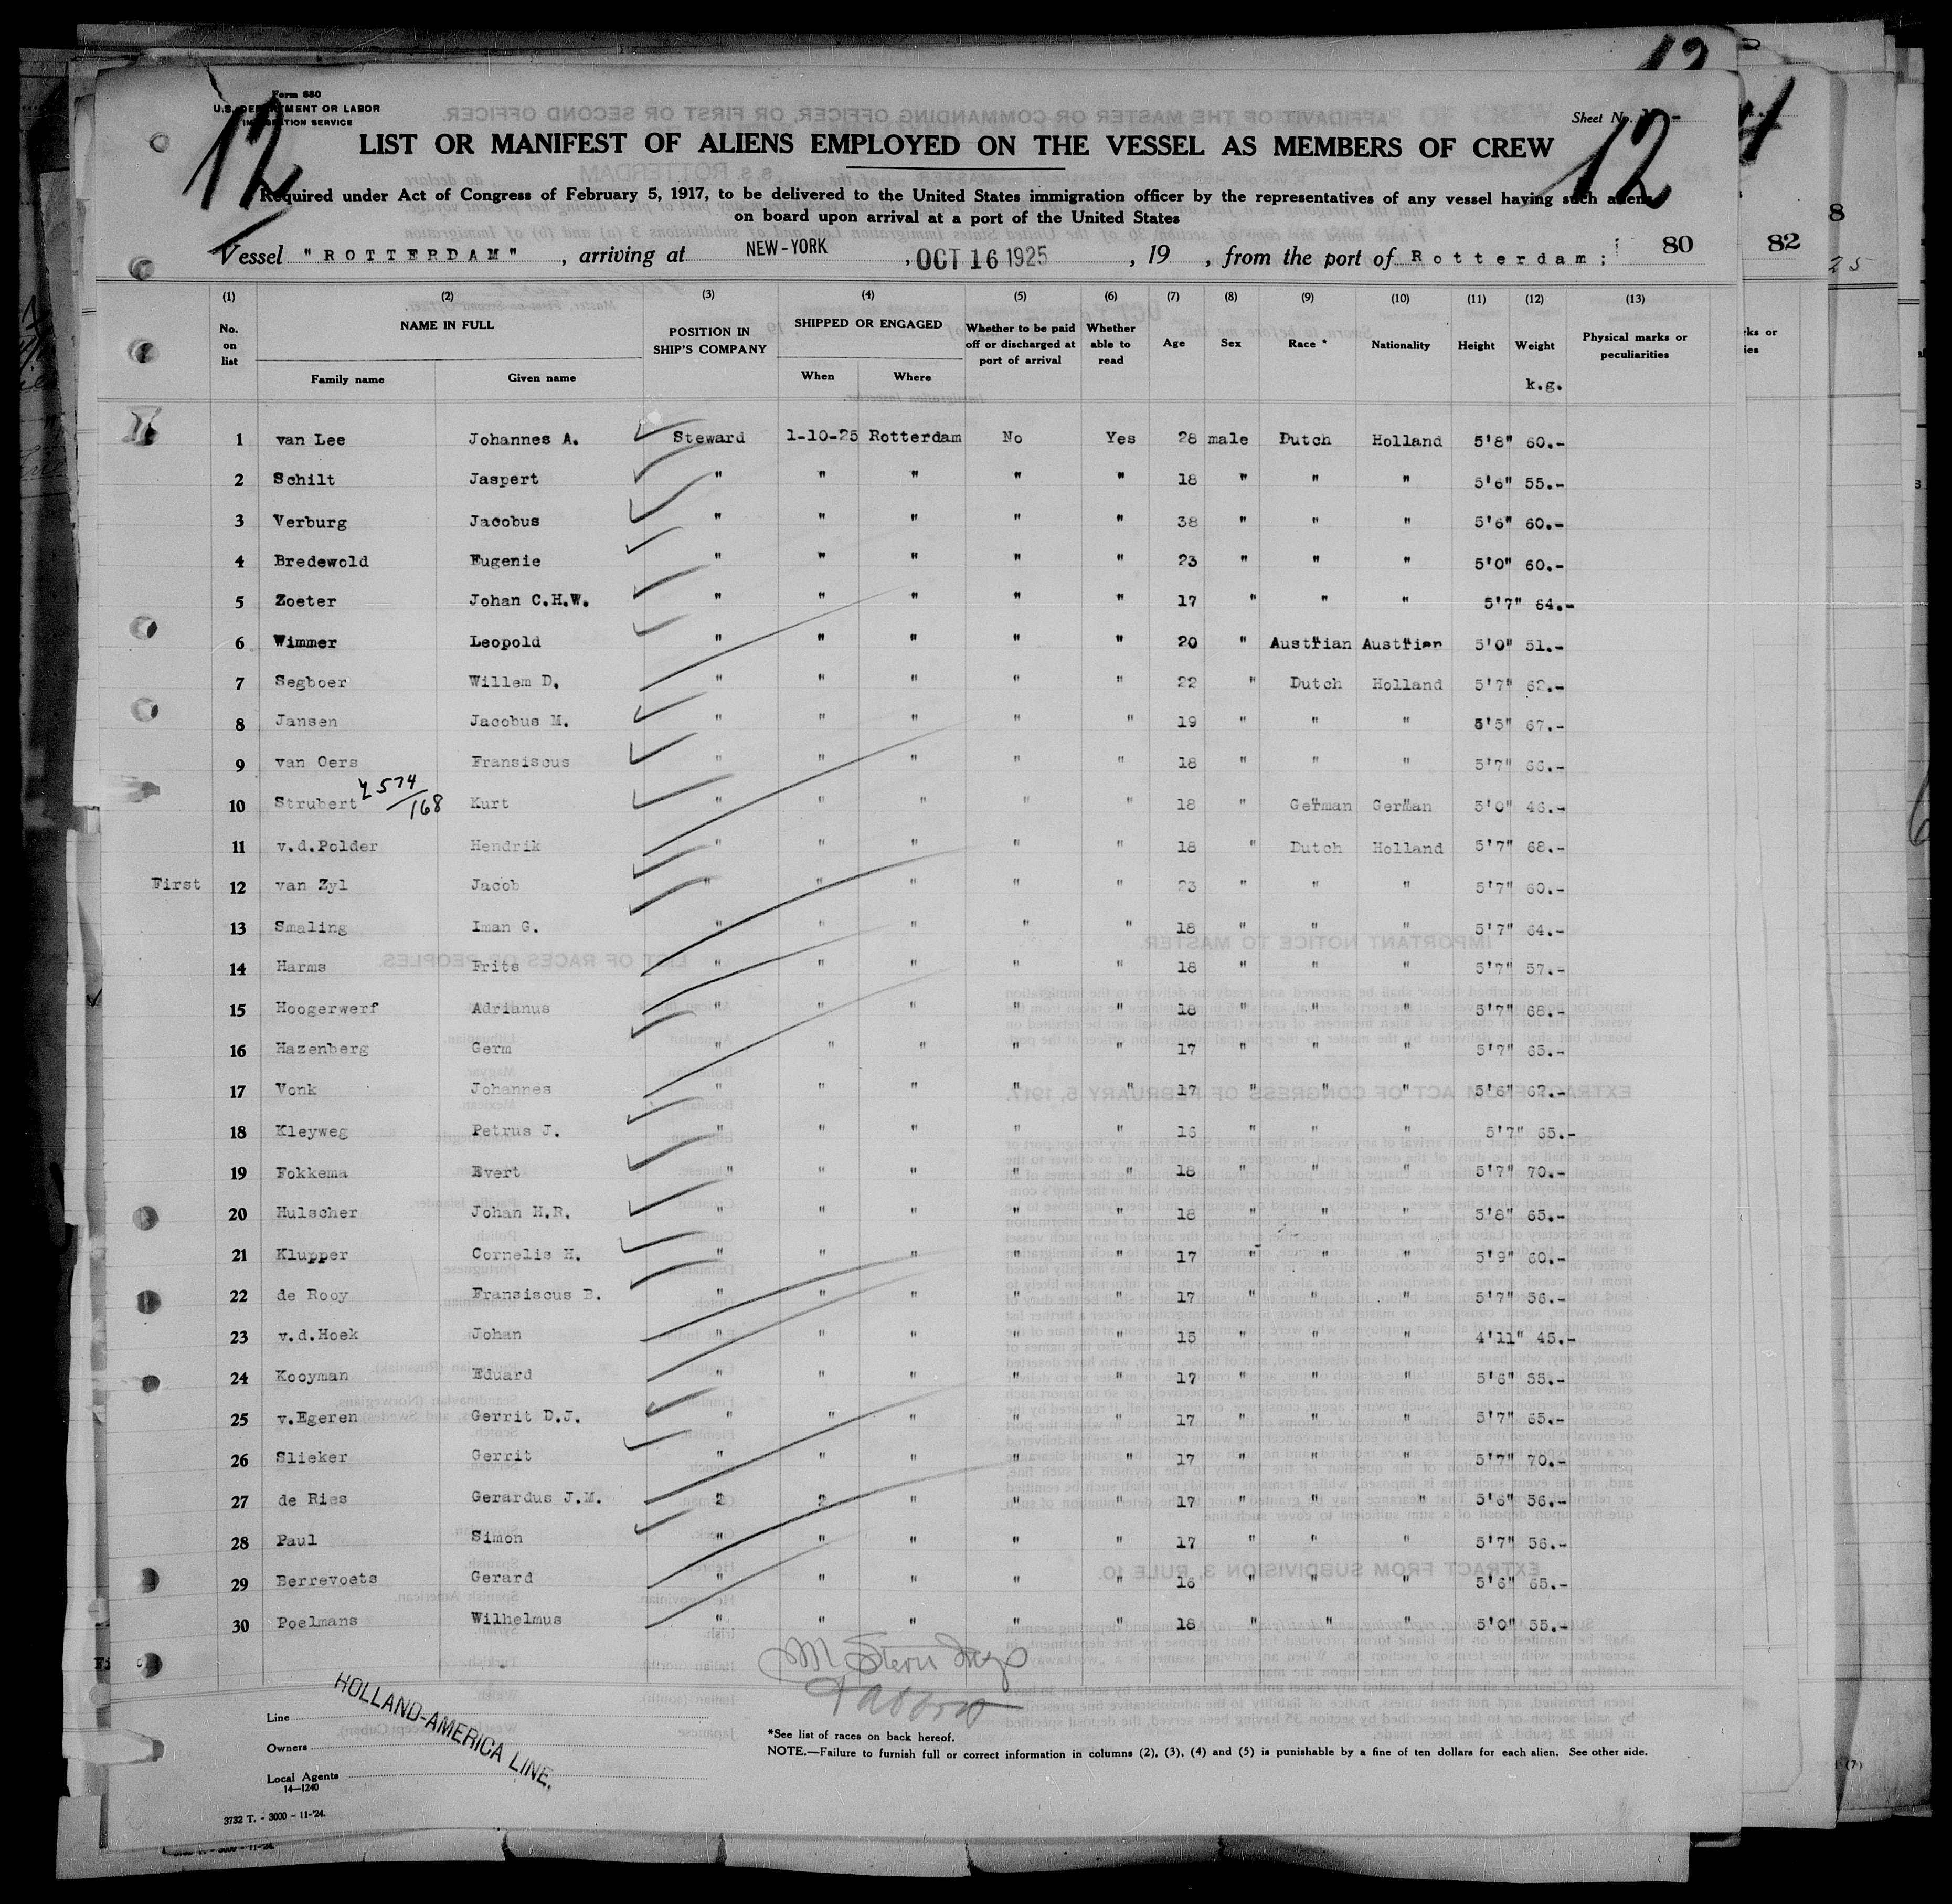 Form 680
U.S. DEPARTMENT OR LABOR
IMMIGRATION SERVICE
12
12
Sheet No.
LIST OR MANIFEST OF ALIENS EMPLOYED ON THE VESSEL AS MEMBERS OF CREW
Required under Act of Congress of February 5, 1917, to be delivered to the United States immigration officer by the representatives of any vessel having such aliens
on board upon arrival at a port of the United States
Vessel "ROTTERDAM", arriving at NEW-YORK, OCT 16 1925, 19 , from the port of Rotterdam; 80
82
8
25
(1) (2) (3) (4) (5) (6) (7) (8) (9) (10) (11) (12) (13)
No. on list NAME IN FULL Family name Given name POSITION IN SHIP'S COMPANY SHIPPED OR ENGAGED When Where Whether to be paid off or discharged at port of arrival Whether able to read Age Sex Race * Nationality Height Weight k.g. Physical marks or peculiarities
1 van Lee Johannes A. Steward 1-10-25 Rotterdam No Yes 28 male Dutch Holland 5'8" 60.-
2 Schilt Jaspert " " " " " 18 " " " 5'6" 55.-
3 Verburg Jacobus " " " " " 38 " " " 5'6" 60.-
4 Bredewold Eugenie " " " " " 23 " " " 5'0" 60.-
5 Zoeter Johan C.H.W. " " " " " 17 " " " 5'7" 64.-
6 Wimmer Leopold " " " " " 20 " Austrian Austrian 5'0" 51.-
7 Segboer Willem D. " " " " " 22 " Dutch Holland 5'7" 62.-
8 Jansen Jacobus M. " " " " " 19 " " " 5'5" 67.-
9 van Oers Fransiscus " " " " " 18 " " " 5'7" 66.-
574/168
10 Strubert Kurt " " " " " 18 " German German 5'0" 46.-
11 v.d.Polder Hendrik " " " " " 18 " Dutch Holland 5'7" 68.-
First 12 van Zyl Jacob " " " " " 23 " " " 5'7" 60.-
13 Smaling Iman G. " " " " " 18 " " " 5'7" 64.-
14 Harms Frits " " " " " 18 " " " 5'7" 57.-
15 Hoogerwerf Adrianus " " " " " 18 " " " 5'7" 68.-
16 Hazenberg Germ " " " " " 17 " " " 5'7" 65.-
17 Vonk Johannes " " " " " 17 " " " 5'6" 62.-
18 Kleyweg Petrus J. " " " " " 16 " " " 5'7" 65.-
19 Fokkema Evert " " " " " 18 " " " 5'7" 70.-
20 Hulscher Johan H.R. " " " " " 18 " " " 5'8" 65.-
21 Klupper Cornelis H. " " " " " 17 " " " 5'9" 60.-
22 de Rooy Fransiscus B. " " " " " 17 " " " 5'7" 56.-
23 v.d.Hoek Johan " " " " " 15 " " " 4'11" 45.-
24 Kooyman Eduard " " " " " 17 " " " 5'6" 55.-
25 v.Egeren Gerrit D.J. " " " " " 17 " " " 5'7" 65.-
26 Slieker Gerrit " " " " " 17 " " " 5'7" 70.-
27 de Ries Gerardus J.M. 2 2 " " " 17 " " " 5'6" 56.-
28 Paul Simon " " " " " 17 " " " 5'7" 56.-
29 Berrevoets Gerard " " " " " 16 " " " 5'6" 65.-
30 Poelmans Wilhelmus " " " " " 18 " " " 5'0" 55.-
Line
Owners
Local Agents
HOLLAND-AMERICA LINE.
14-1240
*See list of races on back hereof.
NOTE.—Failure to furnish full or correct information in columns (2), (3), (4) and (5) is punishable by a fine of ten dollars for each alien. See other side.
3732 T. - 3000 - 11-'24.